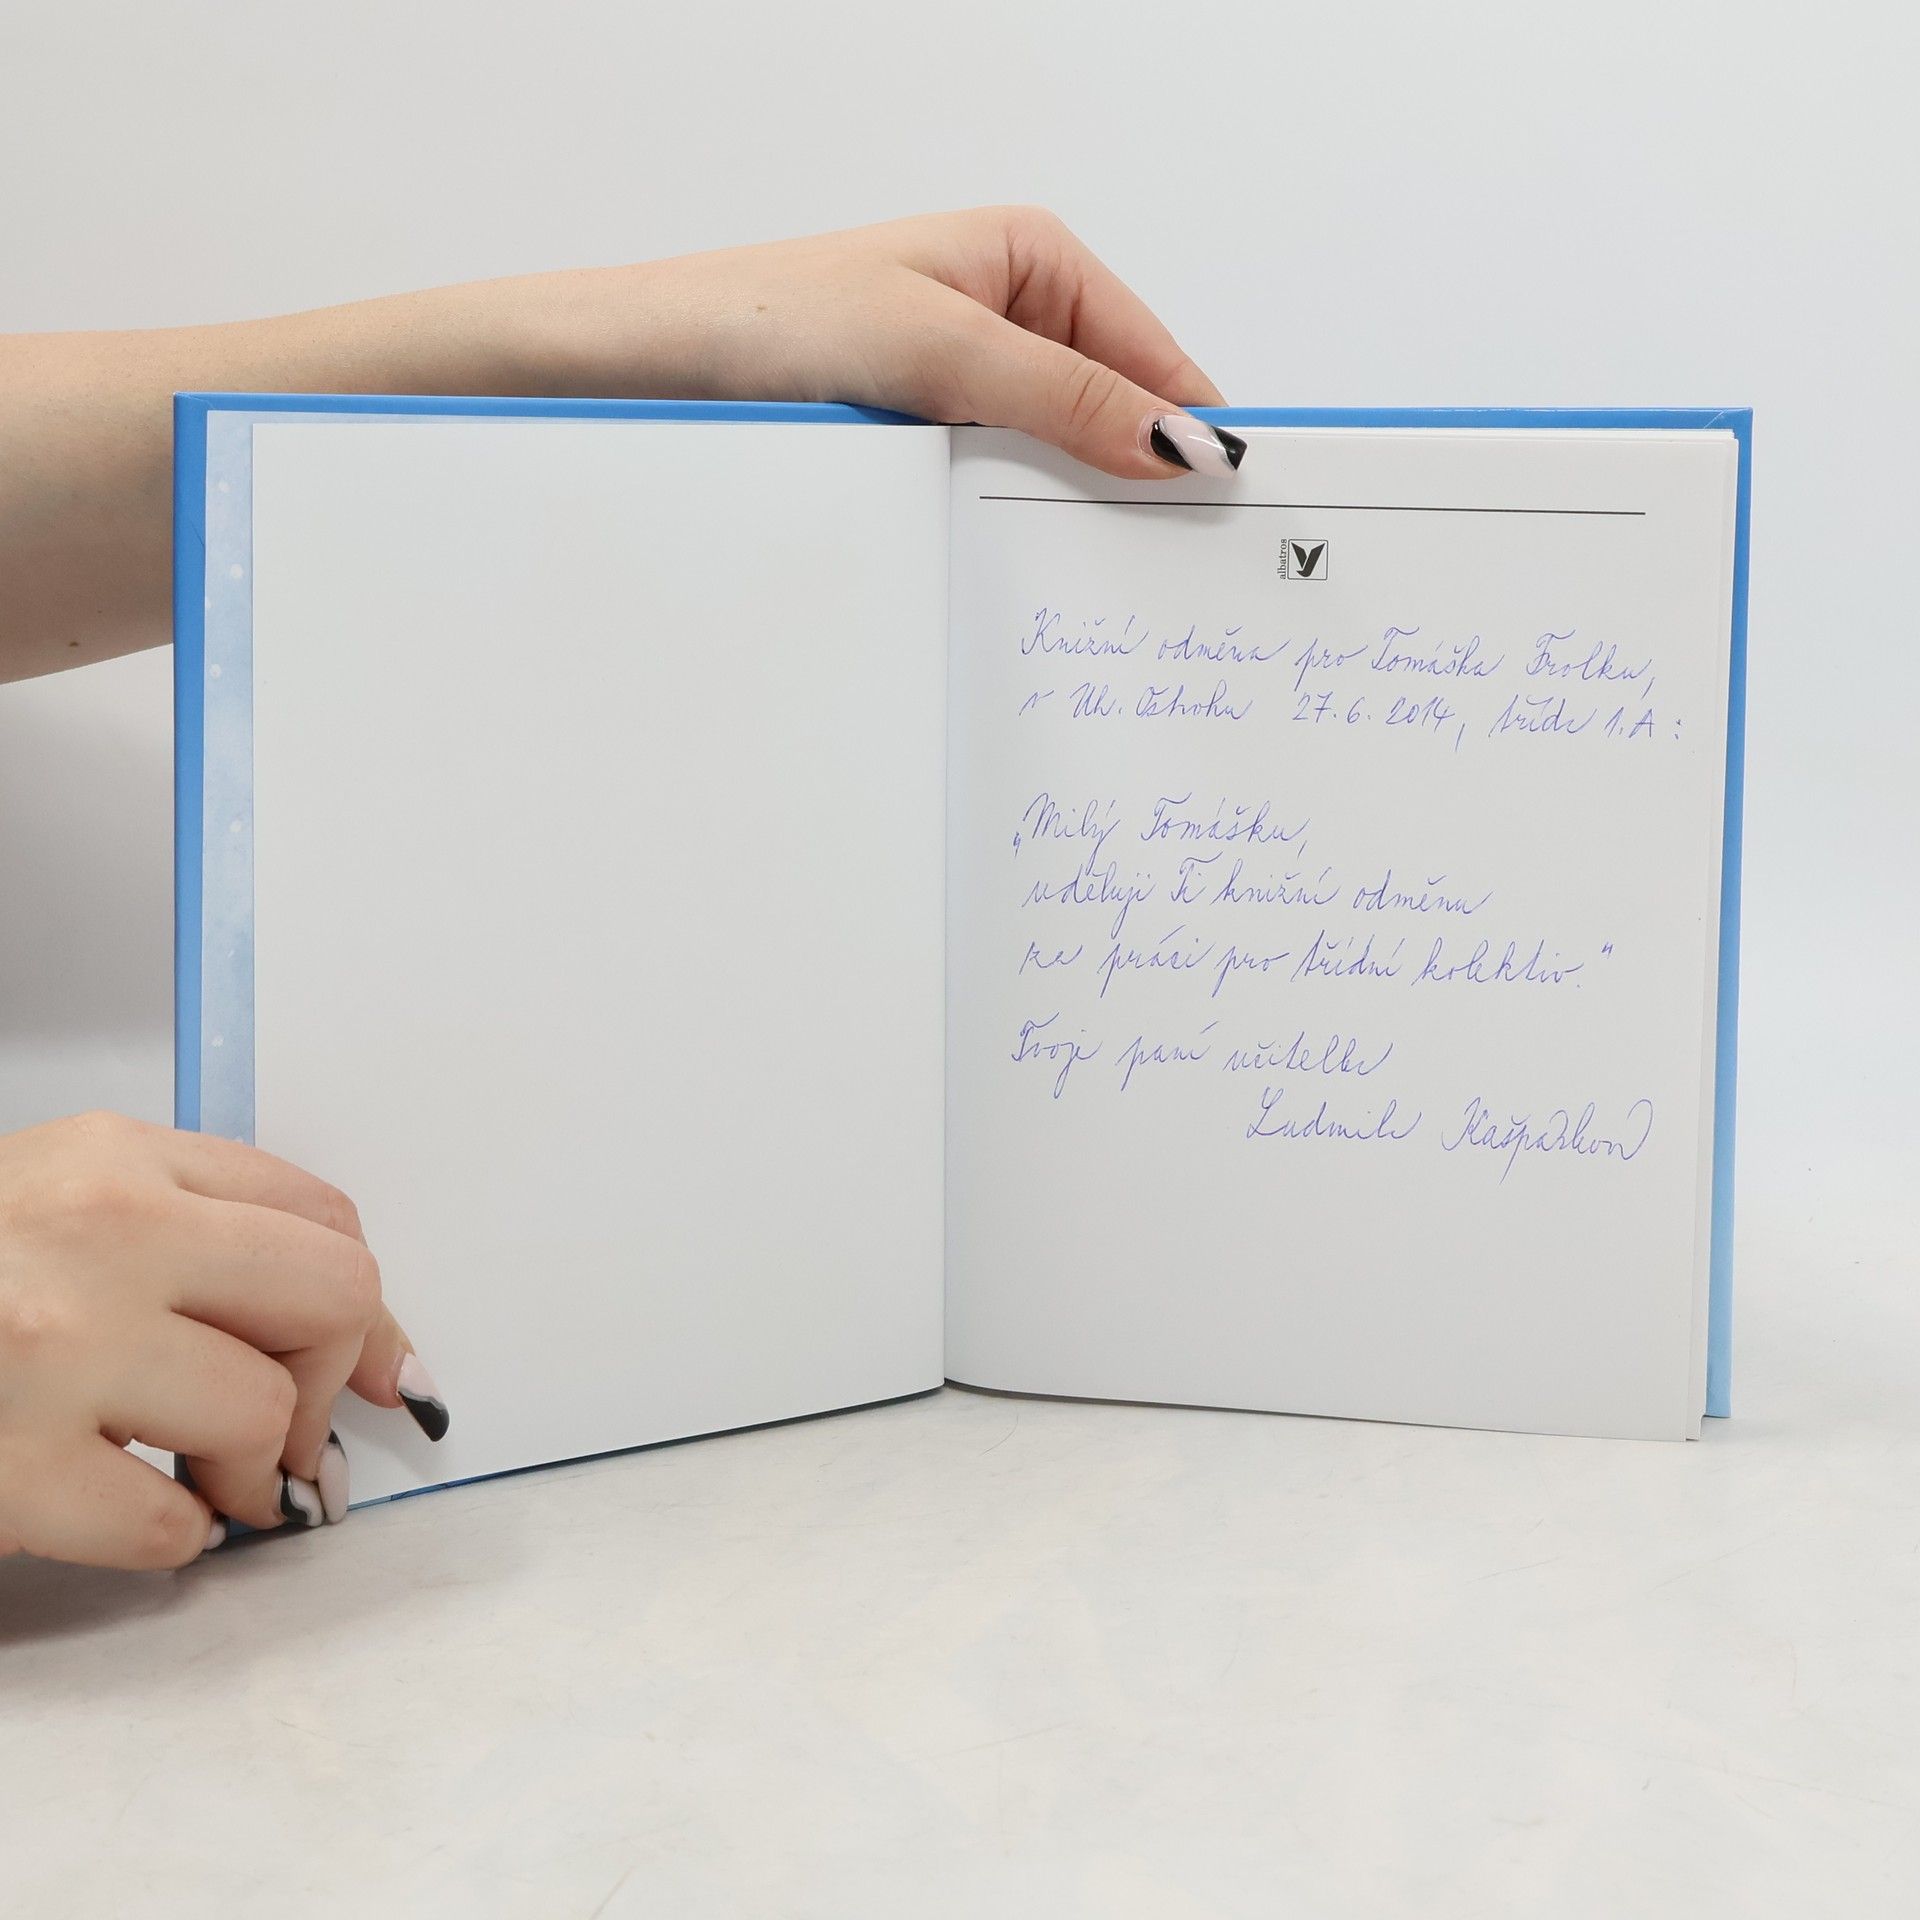 albatros
Knižní odměna pro Tomáška Frolku,
v Uh. Ostrohu 27. 6. 2014, třída 1. A :
„Milý Tomášku,
uděluji Ti knižní odměnu
za práci pro třídní kolektiv."
Tvoje paní učitelka
Ludmila Kašpárková